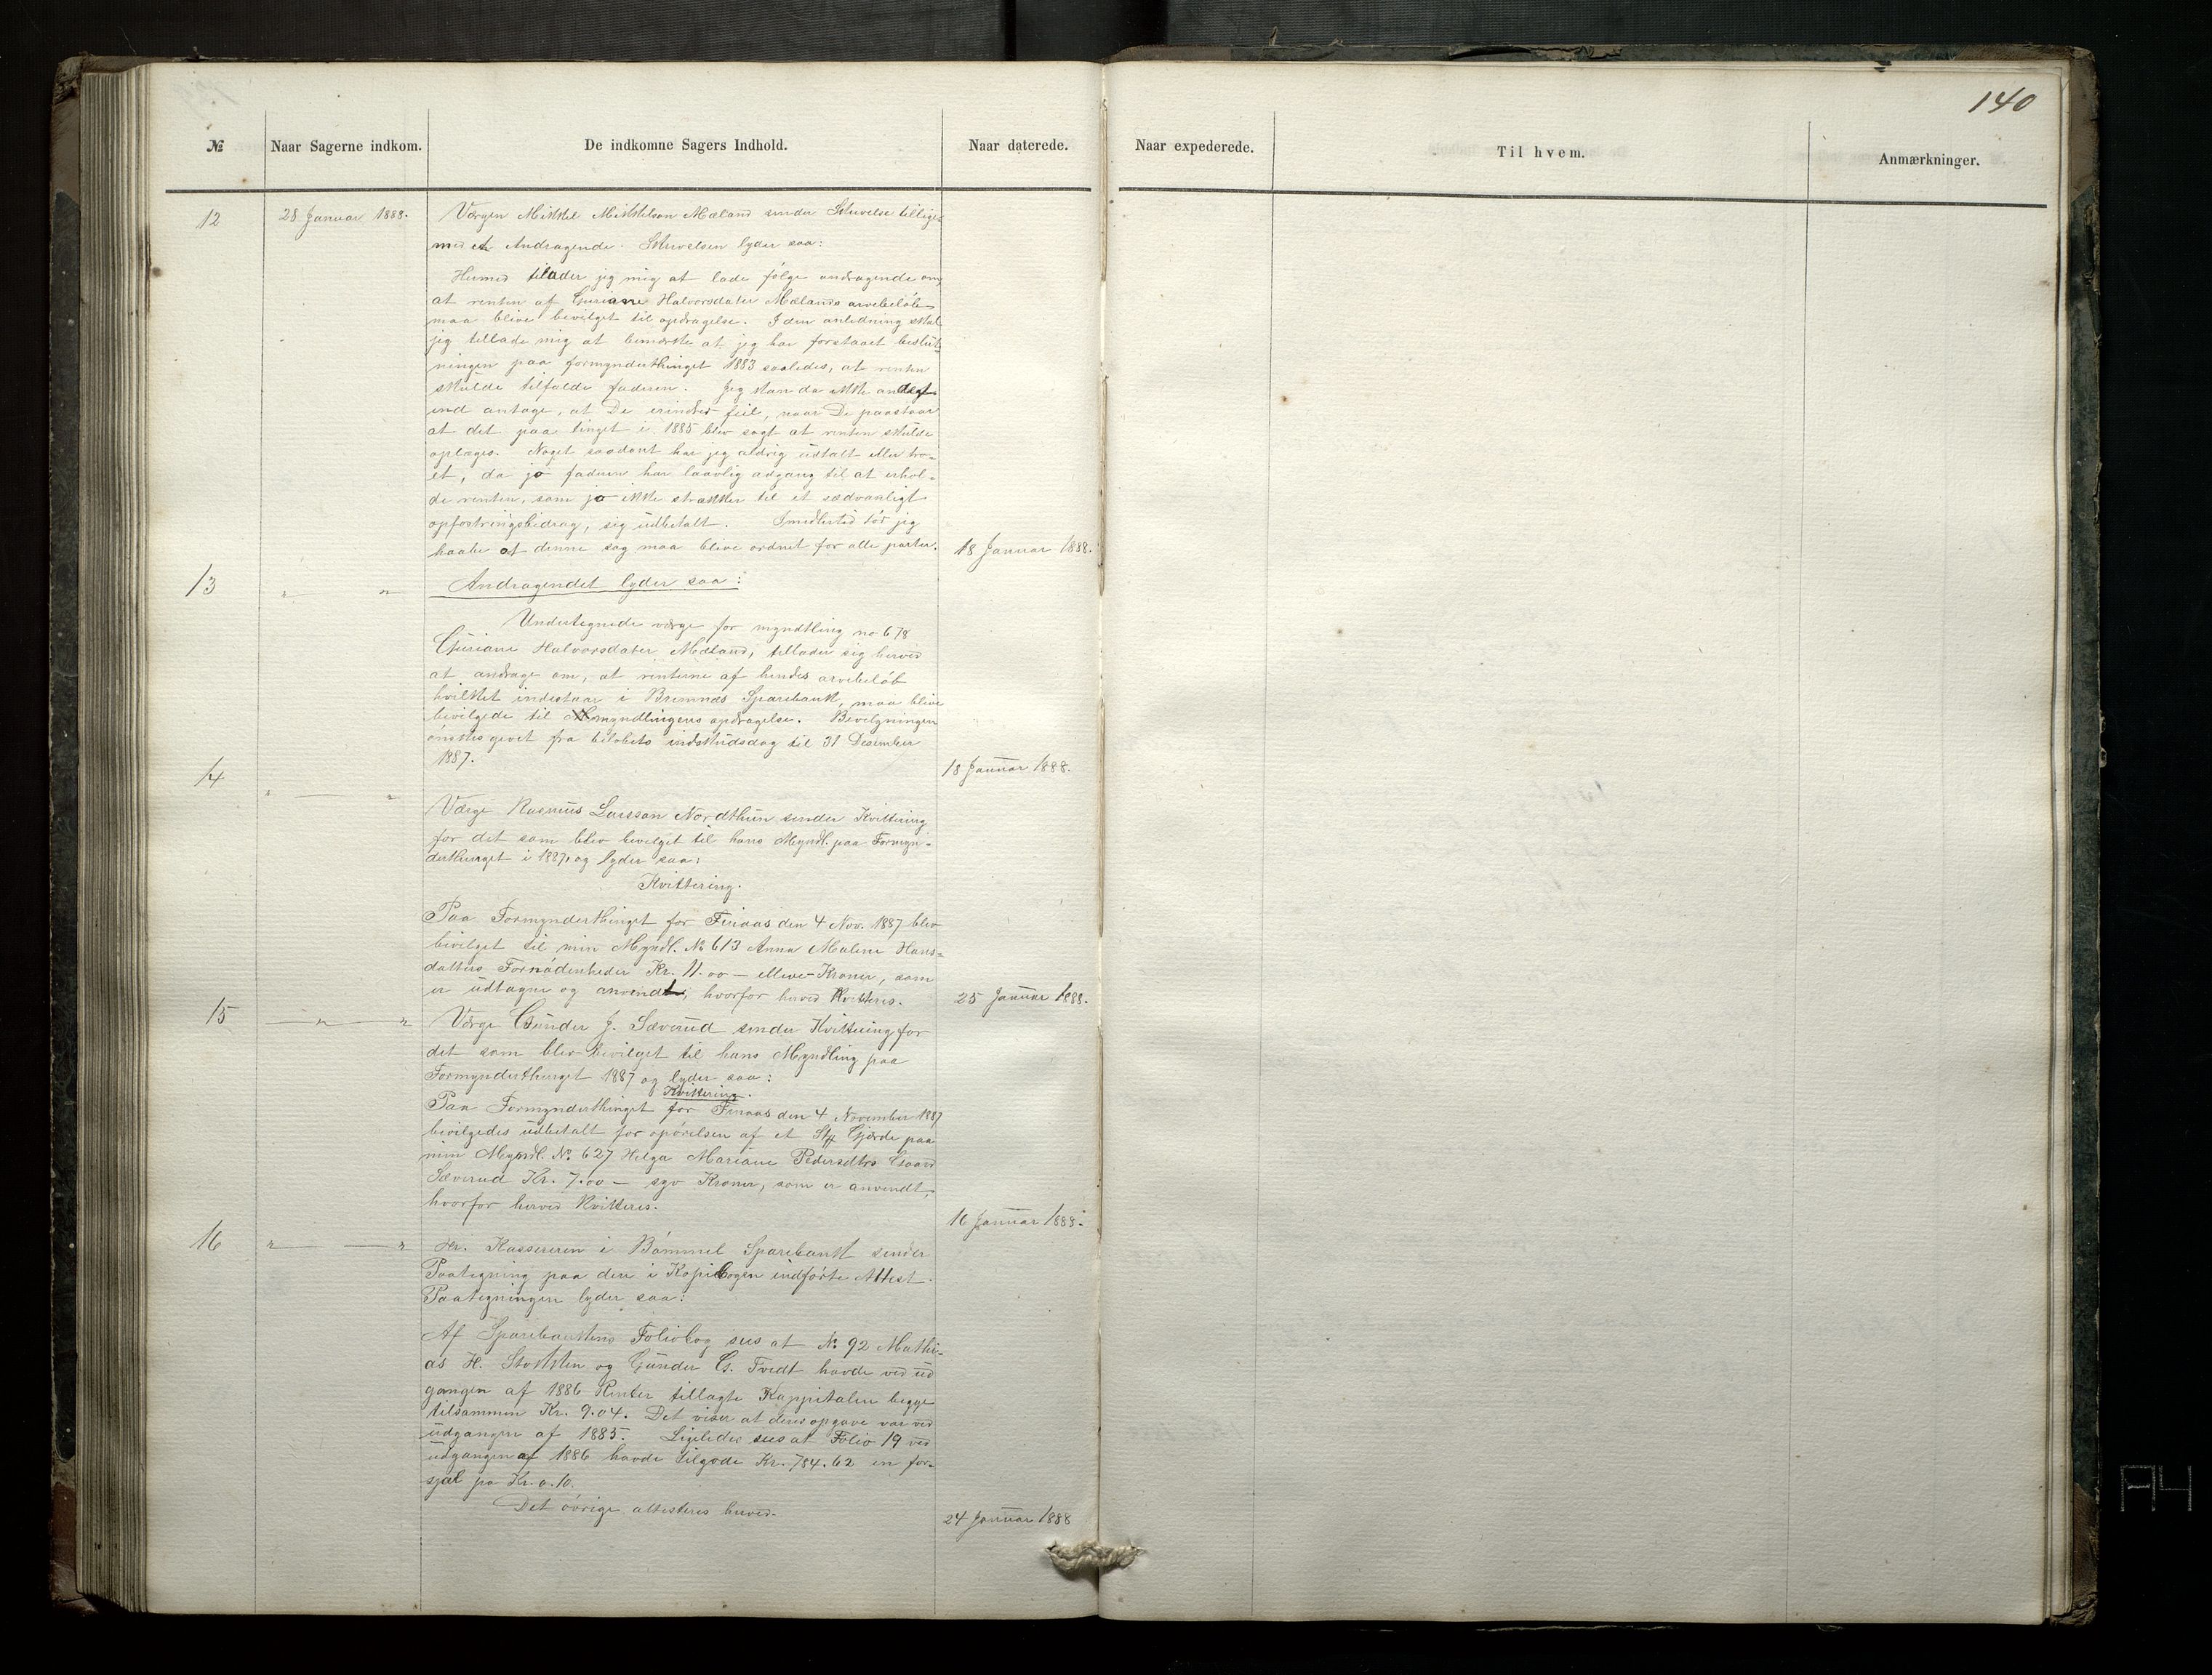 140
№ Naar Sagerne indkom. De indkomne Sagers Indhold. Naar daterede. Naar expederede. Til hvem. Anmærkninger.
12 28 Januar 1888. Værgen Mikkel Mikkelson Mæland sender Skrivelse tillige-
med et Andragende. Skrivelsen lyder saa:
Hermed tilader jeg mig at lade følge andragende om,
at renten af Guriane Halvorsdater Mælands arvebeløb
maa blive bevilget til opdragelse. I den anledning skal
jeg tillade mig at bemærke at jeg har forstaaet beslut-
ningen paa formynderthinget 1883 saaledes, at renten
skulde tilfalde faderen. Jeg kan da ikke andet
end antage, at De erindrer feil, naar De paastaar
at det paa tinget i 1885 blev sagt at renten skulde
oplæges. Noget saadant har jeg aldrig udtalt eller tro-
et, da jo faderen har laavlig adgang til at erhol-
de renten, som jo ikke strækker til et sædvanligt
opfostringsbidrag, sig udbetalt. Imidlertid tør jeg
haabe at denne sag maa blive ordnet for alle parter. 18 Januar 1888.
13 " — " Andragendet lyder saa:
Undertegnede værge for myndtling no 678
Guriane Halvorsdater Mæland, tillader sig herved
at andrage om, at renterne af hendes arvebeløb
hvilket indestaar i Bremnæs Sparebank, maa blive
bevilgede til myndlingens opdragelse. Bevilgningen
ønskes givet fra beløbets indskudsdag til 31 Desember
1887. 18 Januar 1888.
14 " — " Værge Rasmus Larsson Nordthun sender Kvittering
for det som blev bevilget til hans Myndl. paa Formyn-
derthinget i 1887, og lyder saa:
Kvittering.
Paa Formynderthinget for Finaas den 4 Nov. 1887 blev
bevilget til min Myndl. № 613 Anna Maline Hans-
datters Fornødenheder Kr. 11.00 — elleve Kroner, som
er udtagne og anvendt, hvorfor herved Kvitteres. 25 Januar 1888.
15 " — " Værge Gunder J. Sæverud sender Kvittering for
det som blev bevilget til hans Myndling paa
Formynderthinget 1887 og lyder saa:
Kvittering.
Paa Formynderthinget for Finaas den 4 November 1887
bevilgedes udbetalt for opørelsen af et Stk Gjærde paa
min Myndl. № 627 Helga Mariane Pedersdtrs Gaard
Sæverud Kr. 7.00 — syv Kroner, som er anvendt,
hvorfor herved Kvitteres. 16 Januar 1888.
16 " — " Hr. Kassereren i Bømmel Sparebank sender
Paategning paa den i Kopibogen indførte Attest.
Paategningen lyder saa:
Af Sparebankens Foliobog sees at № 92 Mathi-
as H. Stokken og Gunder G. Tvedt havde ved ud
gangen af 1886 Renter tillagte Kappitalen begge
tilsammen Kr. 9.04. Det viser at deres opgave var ved
udgangen af 1885. Ligeledes sees at Folio 19 ved
udgangen af 1886 havde tilgode Kr. 784.62 en for-
sjæl pa Kr. 0.10.
Det øvrige attesteres herved. 24 Januar 1888